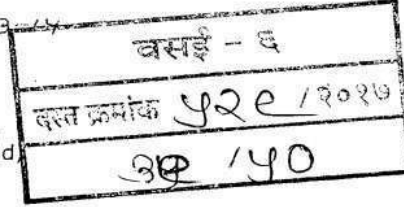 वसई - ६
दस्त क्रमांक ५२९ / २०१७
/ ५०
d